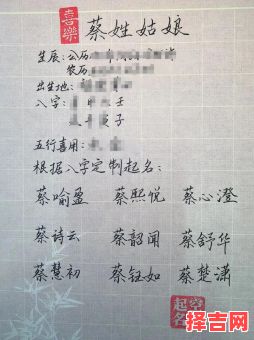 喜樂
蔡姓姑娘
生辰:公历
农历
出生地:
八字:
壬
庚子
五行喜用:
根据八字定制起名:
蔡喻盈 蔡熙悦 蔡心澄
蔡诗云 蔡韶闻 蔡舒华
蔡慧初 蔡钰如 蔡楚潇
起名
择吉网